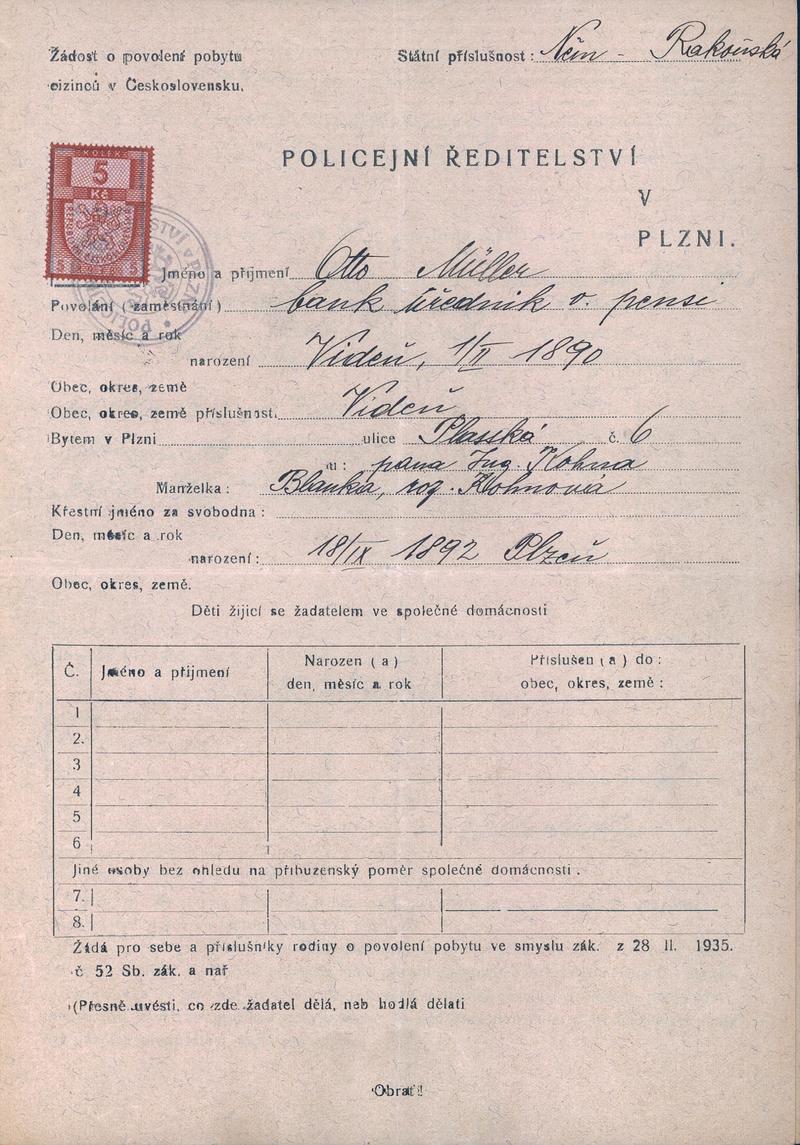 Žádost o povolení pobytu
cizinců v Československu.
Státní příslušnost: Něm - Rakouská
POLICEJNÍ ŘEDITELSTVÍ
V
PLZNI.
KOLEK
5
Kč
Jméno a příjmení Otto Müller
Povolání (zaměstnání) bank. úředník v. pensi
Den, měsíc a rok
narození Vídeň, 1/II 1890
Obec, okres, země
Obec, okres, země příslušnost. Vídeň
Bytem v Plzni ulice Plasská č. 6
u: pana Ing. Kohna
Manželka: Blanka, roz. Kohnová
Křestní jméno za svobodna:
Den, měsíc a rok
narození: 18/IX 1892 Plzeň
Obec, okres, země.
Děti žijící se žadatelem ve společné domácnosti
Č. Jméno a příjmení Narozen (a) den, měsíc a rok Příslušen (a) do: obec, okres, země:
1
2.
3
4
5
6
Jiné osoby bez ohledu na příbuzenský poměr společné domácnosti.
7.
8.
Žádá pro sebe a příslušníky rodiny o povolení pobytu ve smyslu zák. z 28 II. 1935.
č 52 Sb. zák. a nař
(Přesně uvésti, co zde žadatel dělá, neb hodlá dělati
Obrať!